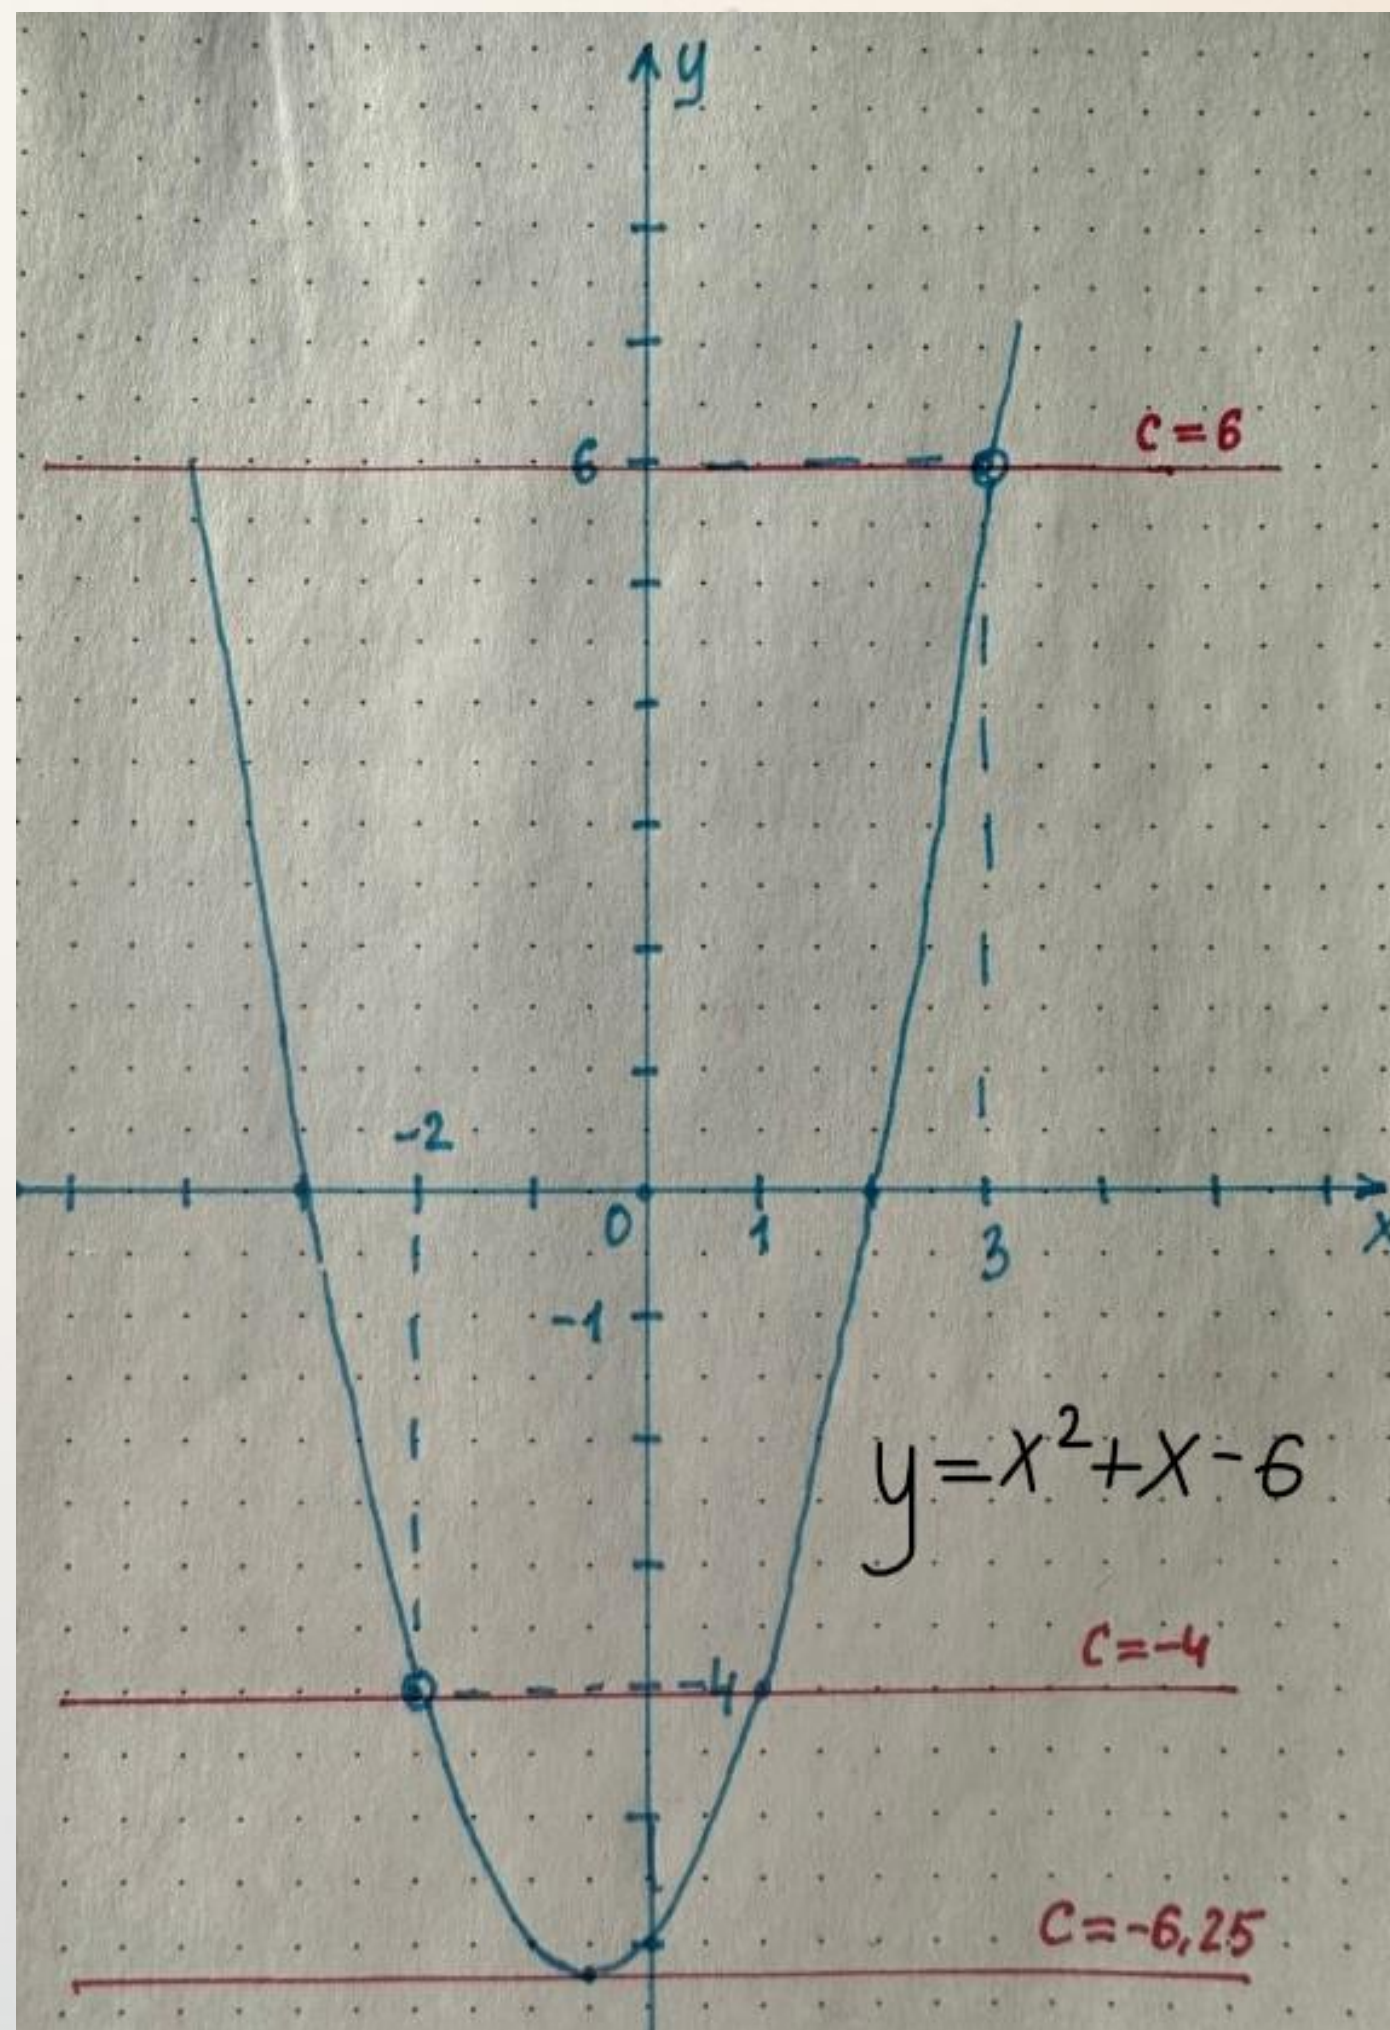 y
c = 6
6
-2
0
1
3
x
-1
y=x²+x-6
c=-4
-4
c=-6,25